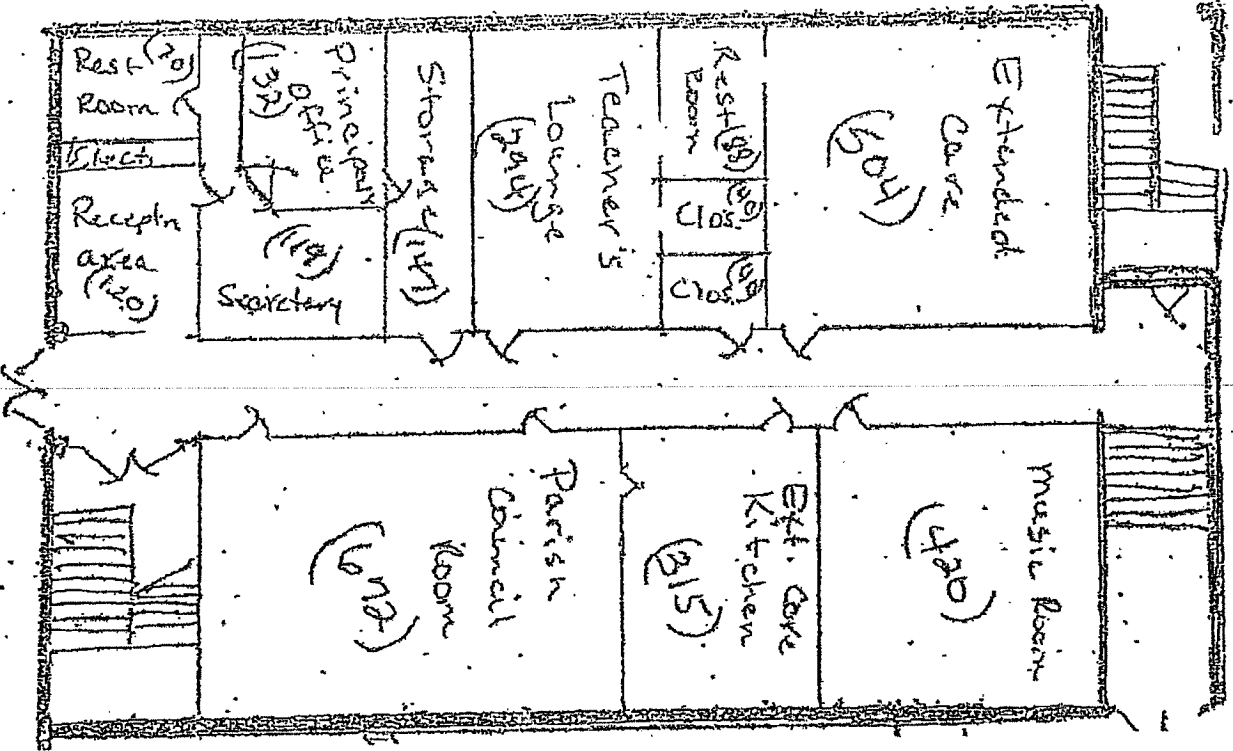 Rest (70)
Room
Elect.
Receptn
area
(120)
Principals
Office
(132)
(119)
Secretary
Storage (147)
Teacher's
Lounge
(294)
Rest (88)
Room
(40)
Clos.
(40)
Clos.
Extended
Care
(604)
Parish
Council
Room
(672)
Ext. Care
Kitchen
(315)
Music Room
(420)